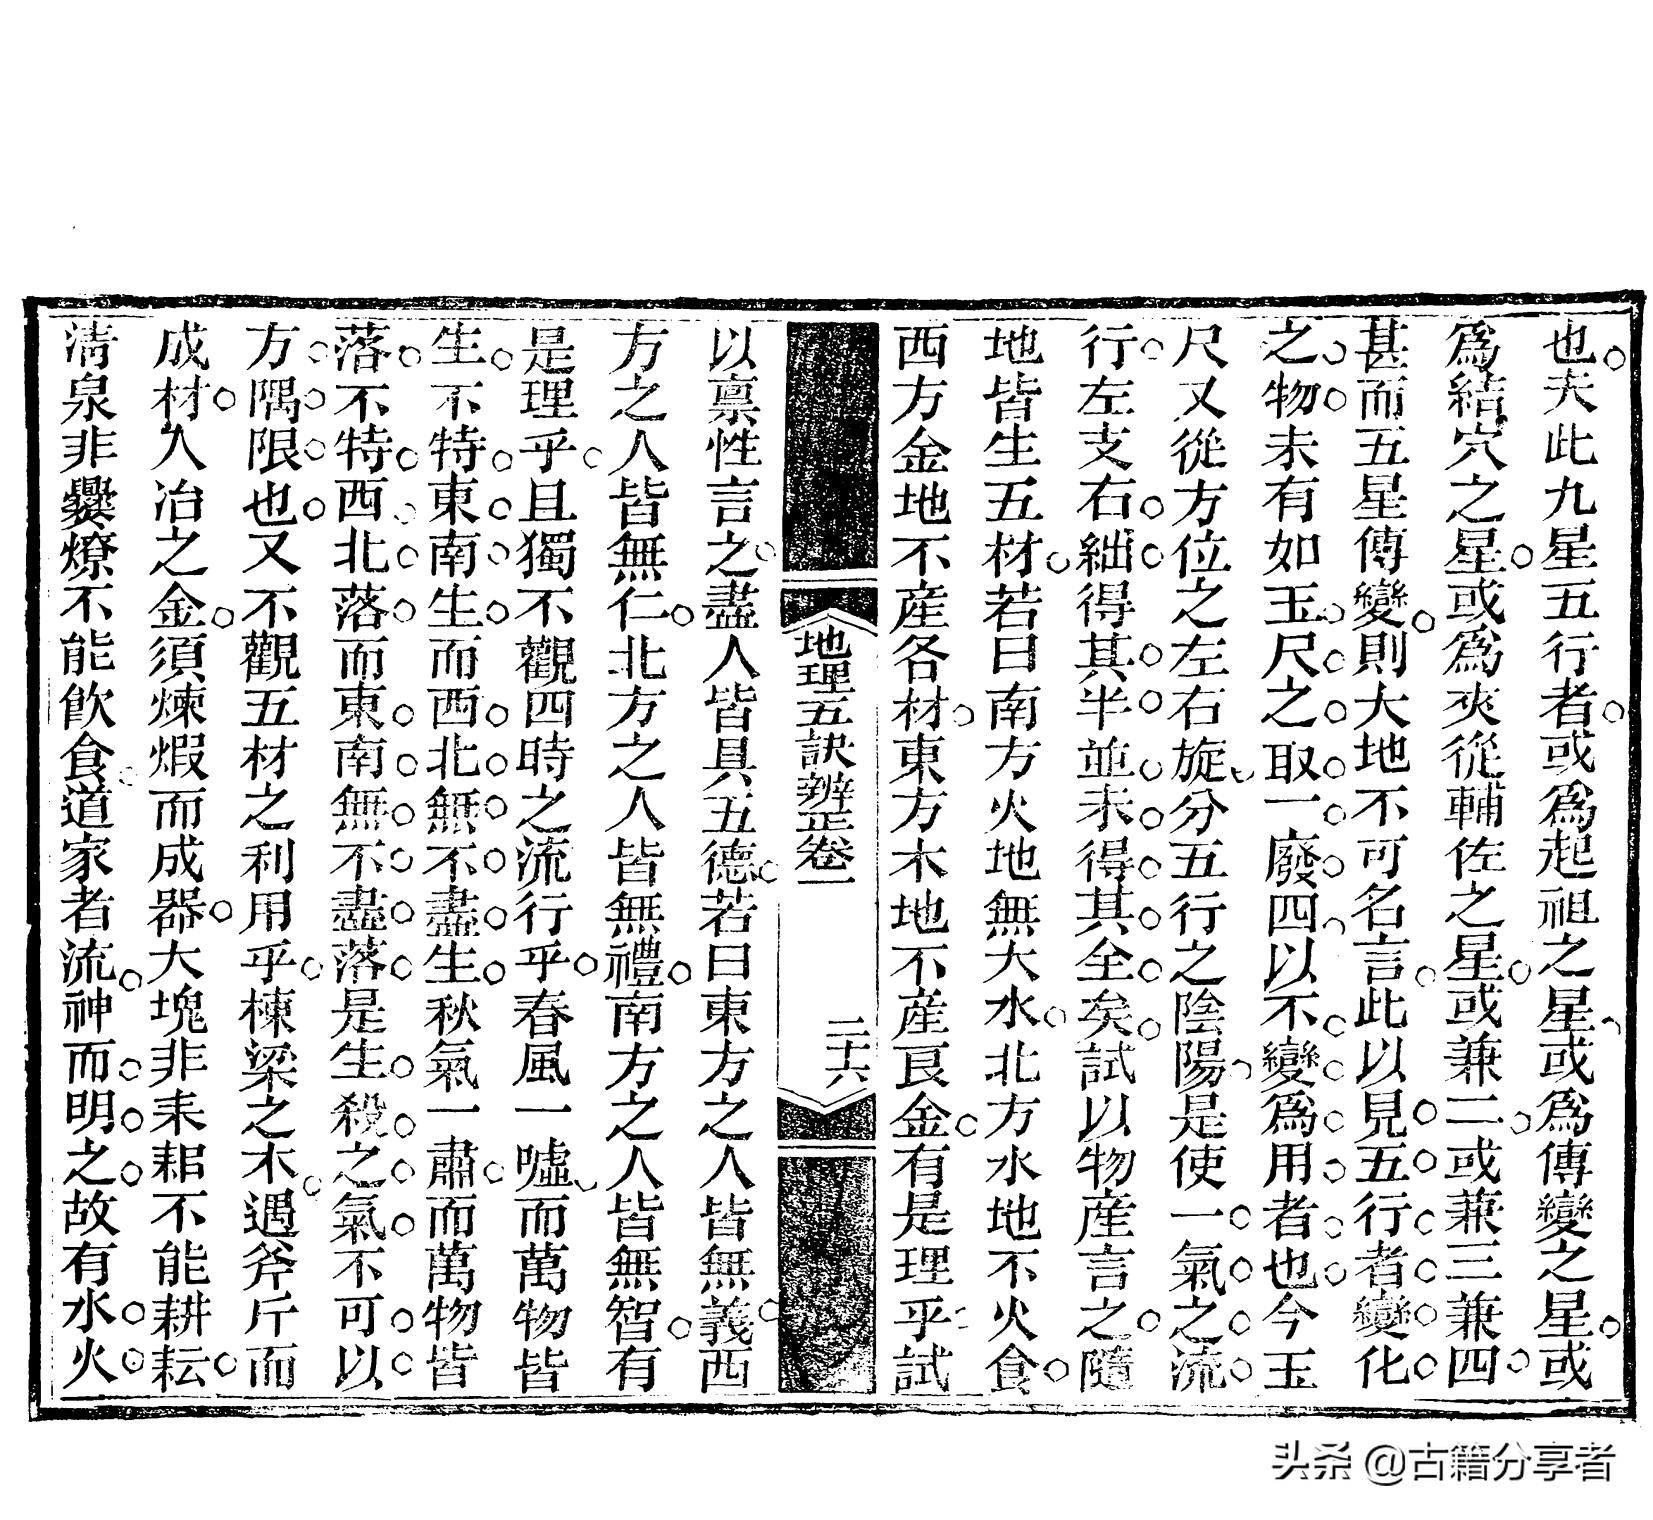 也夫此九星五行者或爲起祖之星或爲傳變之星或
爲結穴之星或爲夾從輔佐之星或兼二或兼三兼四
甚而五星傳變則大地不可名言此以見五行者變化
之物未有如玉尺之取一廢四以不變爲用者也今玉
尺又從方位之左右旋分五行之陰陽是使一氣之流
行左支右絀得其半並未得其全矣試以物產言之隨
地皆生五材若曰南方火地無大水北方水地不火食
西方金地不產各材東方木地不產艮金有是理乎試
地理五訣辨正卷一
二十六
以禀性言之盡人皆具五德若曰東方之人皆無義西
方之人皆無仁北方之人皆無禮南方之人皆無智有
是理乎且獨不觀四時之流行乎春風一噓而萬物皆
生不特東南生而西北無不盡生秋氣一肅而萬物皆
落不特西北落而東南無不盡落是生殺之氣不可以
方隅限也又不觀五材之利用乎棟梁之木遇斧斤而
成材人冶之金須煉煆而成器大塊非耒耜不能耕耘
淸泉非爨燎不能飮食道家者流神而明之故有水火
头条 @古籍分享者